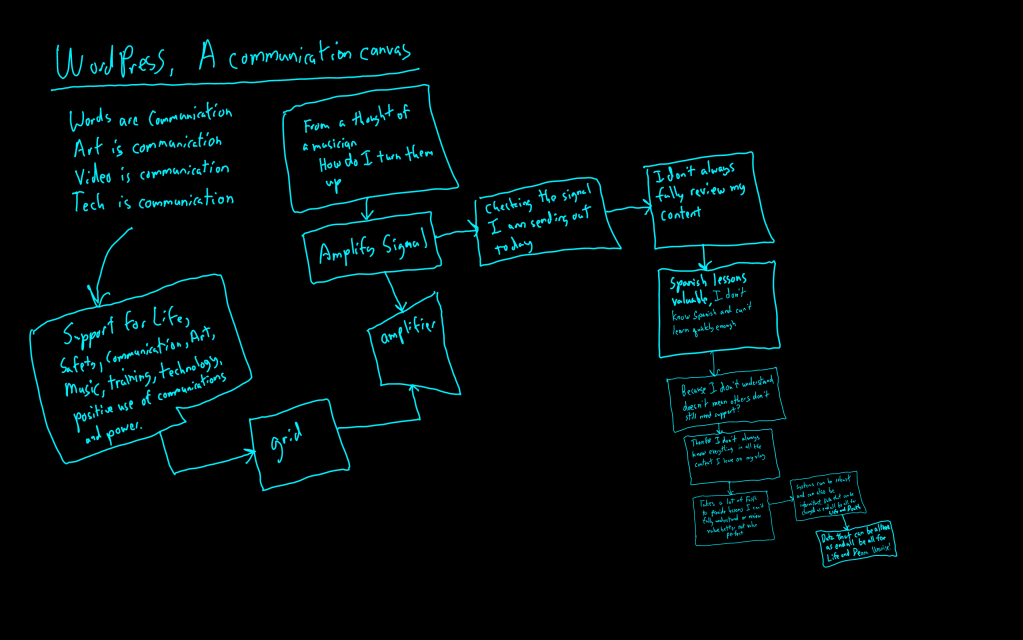 WordPress, A communication canvas
Words are Communication
Art is communication
Video is communication
Tech is communication
From a thought of
a musician
How do I turn them
up
Amplify Signal
Checking the signal
I am sending out
today
I don't always
fully review my
content
Spanish lessons
valuable, I don't
know Spanish and can't
learn quickly enough
Because I don't understand
doesn't mean others don't
still need support?
I don't always
know everything in all the
content I have on my vlog
Takes a lot of Faith
to provide lessons I can't
fully understand or review
value better not value
perfect
Systems can be robust
and can also be
Data that can be
as end all be all for
Life and Death
Data that can be
as end all be all for
Life and Death
Support for Life,
Safety, Communication, Art,
Music, training, technology,
positive use of communications
and power.
grid
amplifier